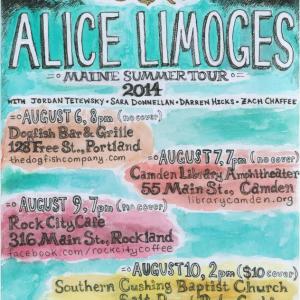 ALICE LIMOGES
MAINE SUMMER TOUR
2014
WITH JORDAN TETEWSKY • SARA DONNELLAN • DARREN HICKS • ZACH CHAFFEE
AUGUST 6, 8pm (no cover)
Dogfish Bar & Grille
128 Free St., Portland
thedogfishcompany.com
AUGUST 7, 7pm (no cover)
Camden Library Amphitheater
55 Main St., Camden
librarycamden.org
AUGUST 9, 7pm (no cover)
Rock City Cafe
316 Main St., Rockland
facebook.com/rockcitycoffee
AUGUST 10, 2pm ($10 cover)
Southern Cushing Baptist Church